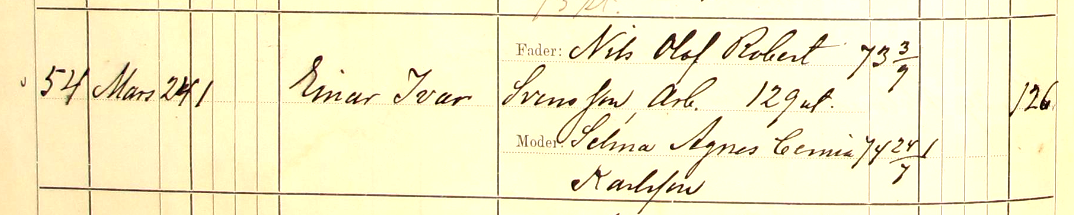 Fader: Nils Olof Robert 73 3/9
54 Mars 24 1 Einar Ivar Svensson, Arb. 129 ut. 126
Moder: Selma Agnes 74 24/7 1
Karlsson